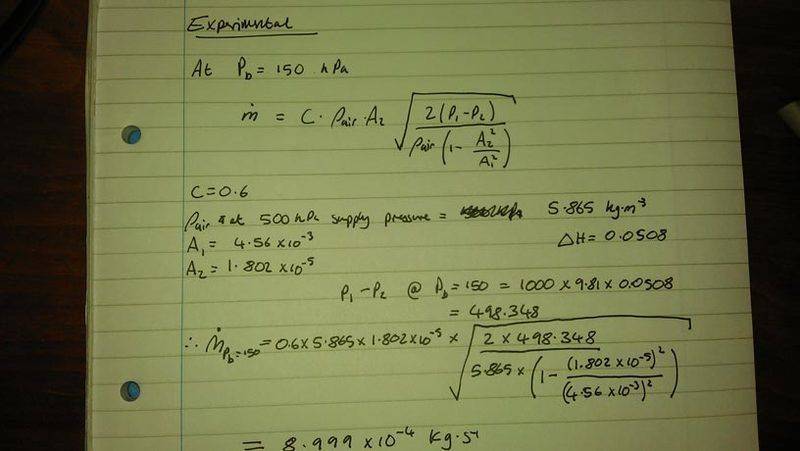 Experimental
At P_b = 150 hPa
ṁ = C · ρair · A₂ √(2(P₁-P₂) / (ρair (1 - A₂²/A₁²)))
C = 0.6
ρair at 500 hPa supply pressure = 5.865 kg·m⁻³
A₁ = 4.56 × 10⁻³ ΔH = 0.0508
A₂ = 1.802 × 10⁻⁵
P₁-P₂ @ P_b = 150 = 1000 × 9.81 × 0.0508
= 498.348
∴ ṁ_Pb=150 = 0.6 × 5.865 × 1.802 × 10⁻⁵ × √(2 × 498.348 / (5.865 × (1 - (1.802 × 10⁻⁵)² / (4.56 × 10⁻³)²)))
= 8.999 × 10⁻⁴ kg·s⁻¹